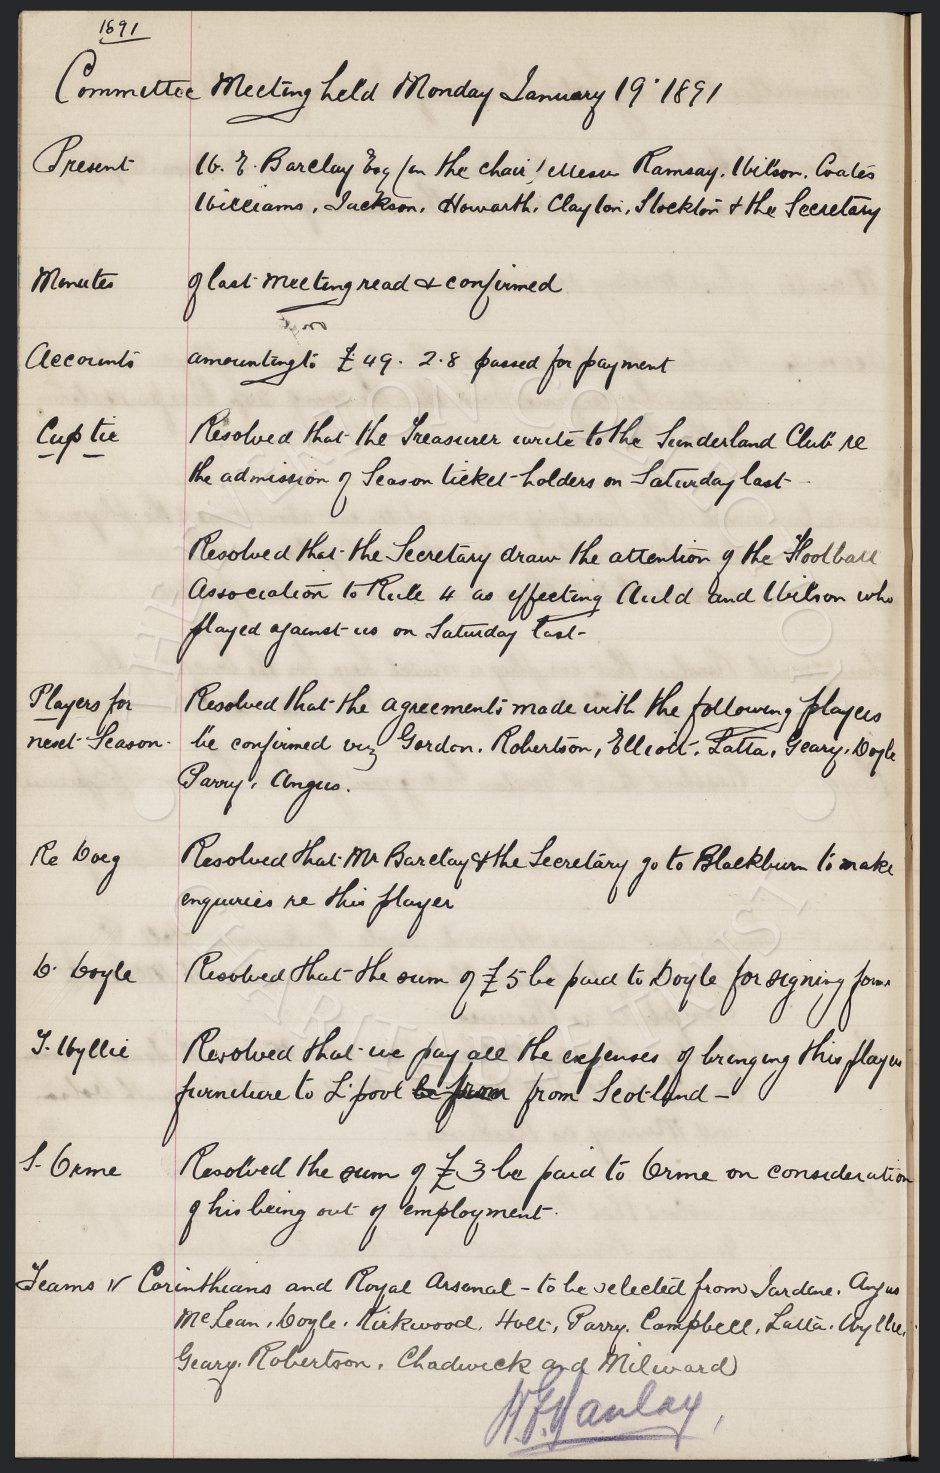 1891
Committee Meeting held Monday January 19 1891
Present W. E. Barclay Esq (in the chair) Messrs Ramsay. Wilson. Coates
Williams, Jackson, Howarth, Clayton, Stockton & the Secretary
Minutes of last meeting read & confirmed
Accounts amounting to £49. 2. 8 passed for payment
Cup tie Resolved that the Treasurer write to the Sunderland Club re
the admission of Season ticket-holders on Saturday last
Resolved that the Secretary draw the attention of the Football
Association to Rule 4 as effecting Auld and Wilson who
played against us on Saturday last-
Players for Resolved that the agreements made with the following players
next Season. be confirmed viz Gordon. Robertson, Elliott. Latta, Geary. Doyle
Parry, Angus.
Re Doeg Resolved that Mr Barclay & the Secretary go to Blackburn to make
enquiries re this player
D. Doyle Resolved that the sum of £5 be paid to Doyle for signing form
T. Wyllie Resolved that we pay all the expenses of bringing this players
furniture to L'pool be from from Scotland -
S. Orme Resolved the sum of £3 be paid to Orme on consideration
of his being out of employment.
Teams v Corinthians and Royal Arsenal - to be selected from Jardine. Angus
McLean, Doyle. Kirkwood, Holt, Parry. Campbell, Latta. Wyllie,
Geary. Robertson. Chadwick and Milward
THE EVERTON COLLECTION
CHARITABLE TRUST